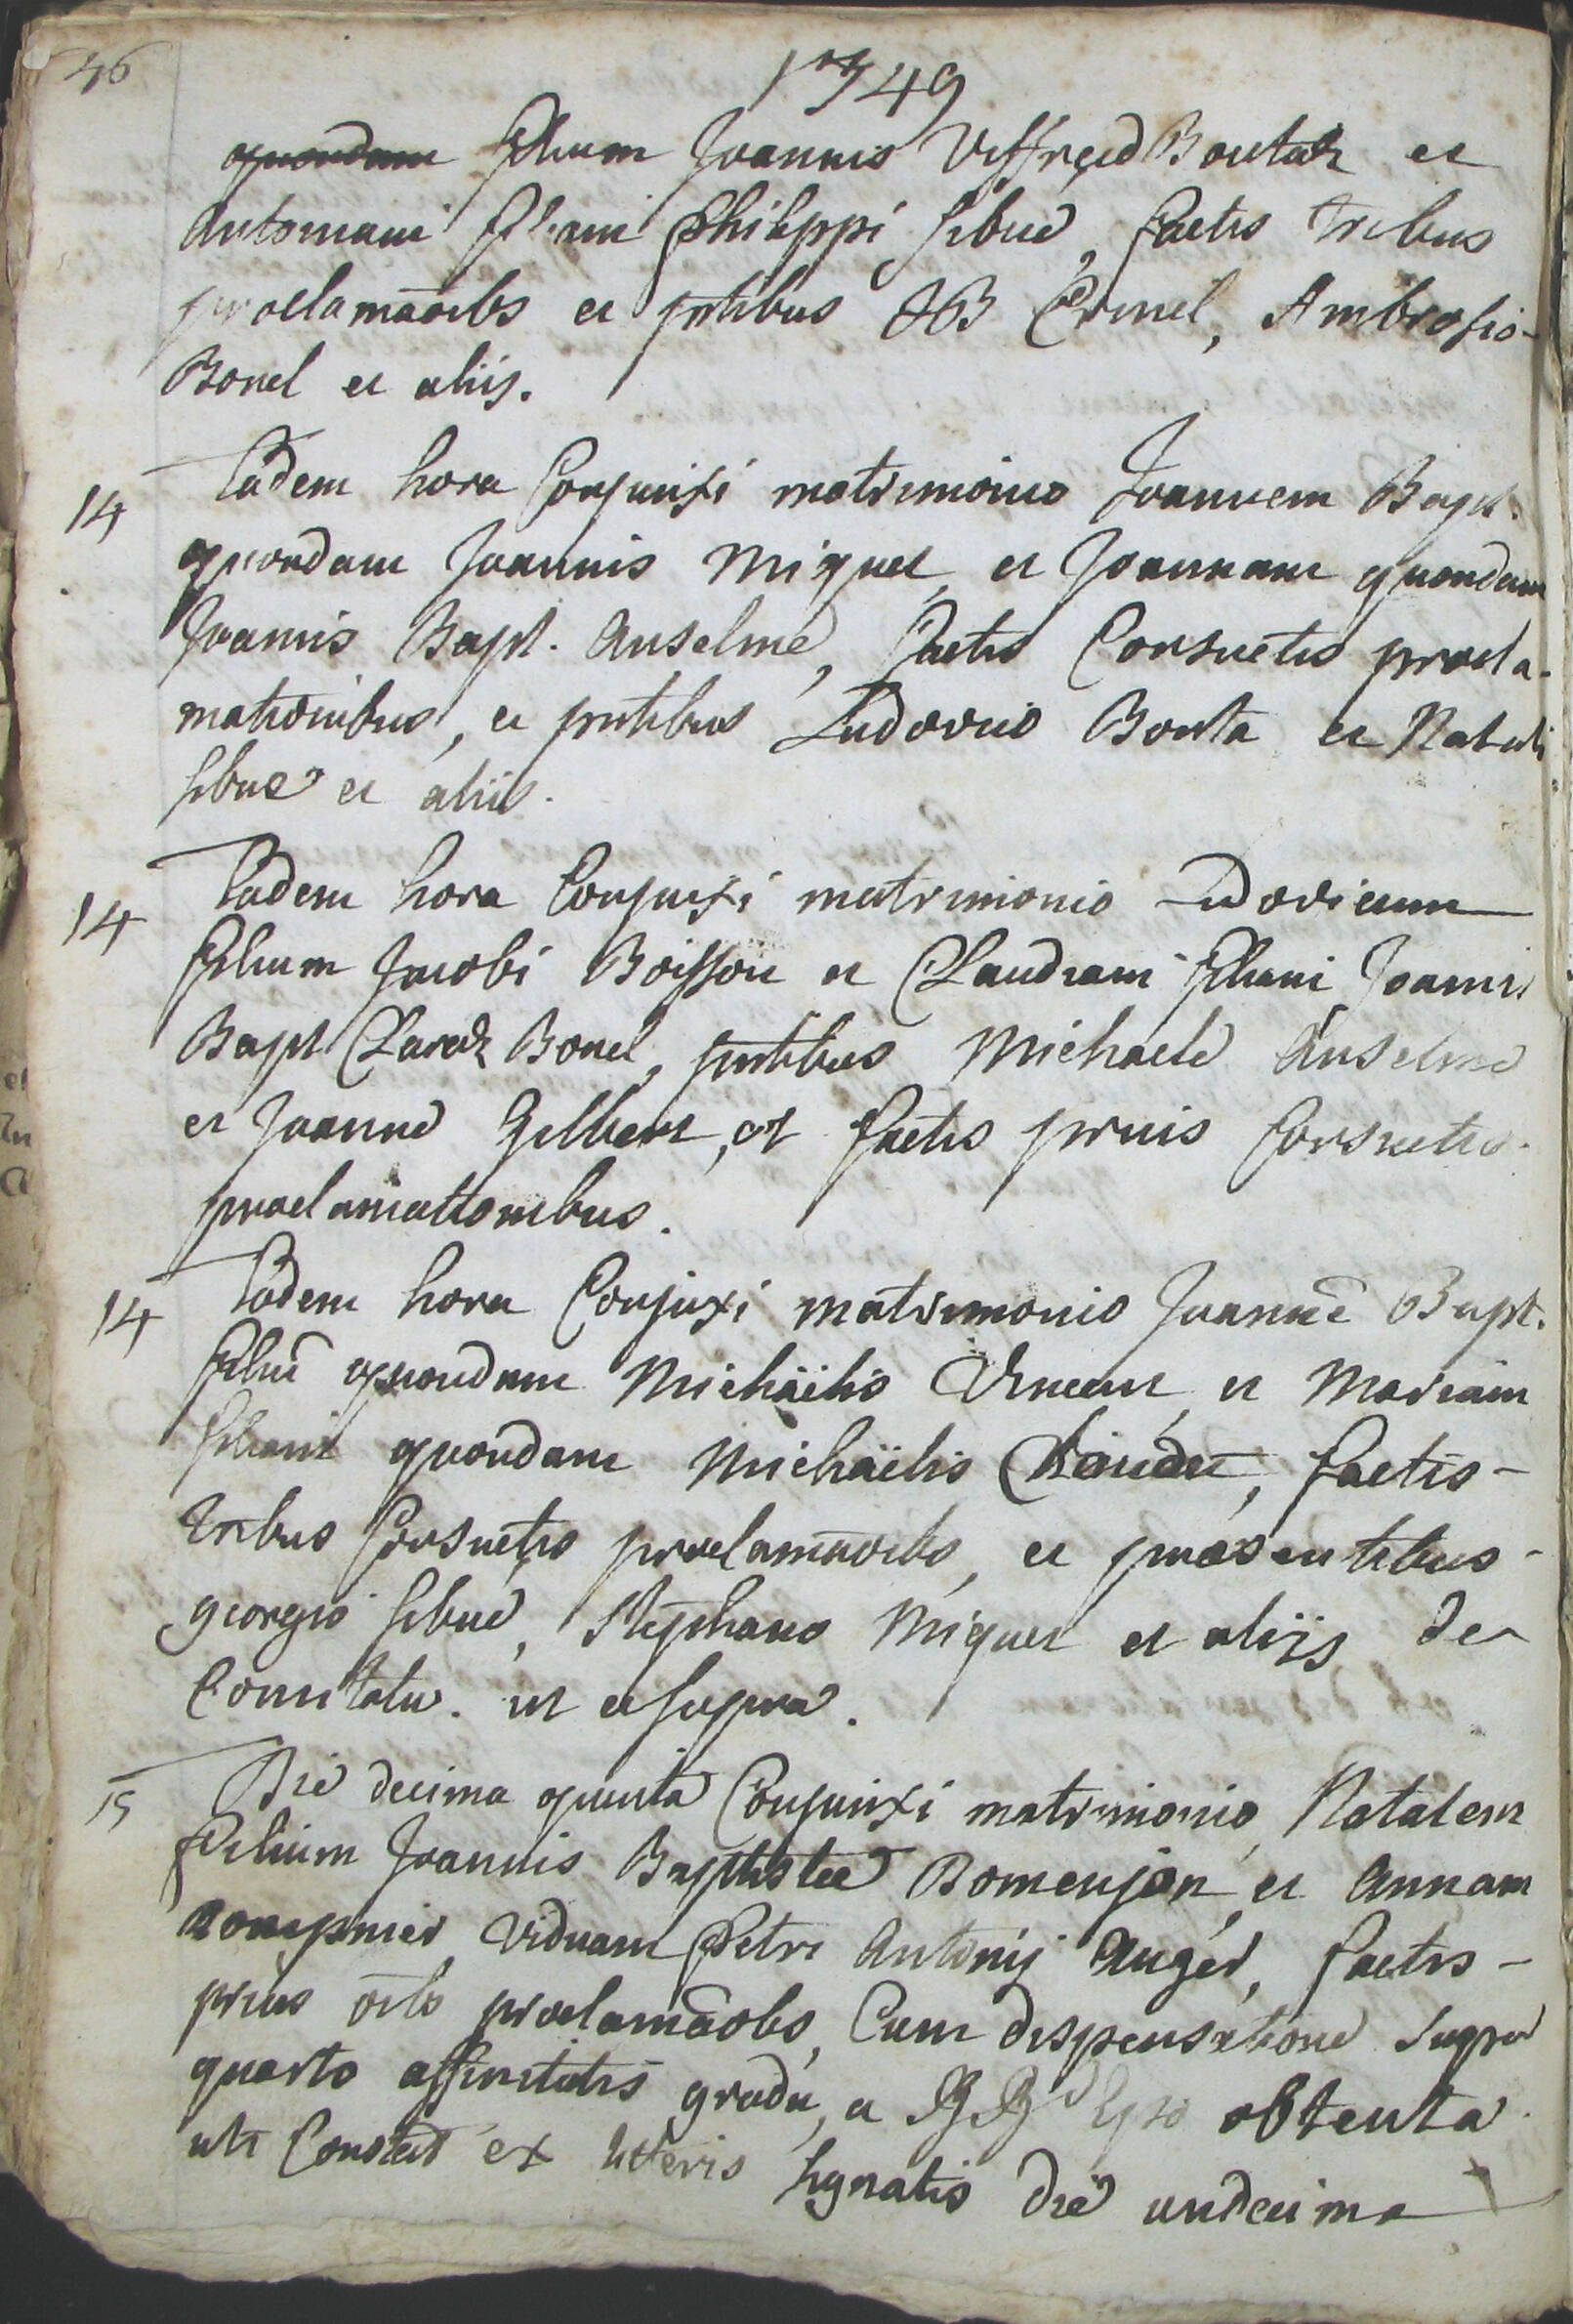 46
1749
quondam filium Joannis Viffred Boutar et
Antoniam filiam Philippi sibue, factis tribus
proclamaõibs et pntibus JB Crinel, Ambrosio
Bonel et aliis.
14 Eadem hora Conjunxi matrimonio Joannem Bapt.
quondam Joannis Miquel, et Joannam quondam
Joannis Bapt. Anselme, factis Consuetis procla-
mationibus, et pntibus Ludovico Bonta et Natali
sibue et aliis.
14 Eadem hora Conjunxi matrimonio Ludovicum
filium Jacobi Boisson et Claudiam filiam Joannis
Bapt Bonel, pntibus Michaele Anselme
et Joanne Gilbert, et factis prius Consuetis
proclamationibus.
14 Eadem hora Conjuxi matrimonio Joannē Bapt.
filiū quondam Michäelis et Mariam
filiam quondam Michäelis factis
tribus Consuetis proclamaōibs, et præsentibus
georgio sibue, Stephano Miquel et aliis de
Comitatu. ut et supra.
15 Die decima quinta Conjunxi matrimonio Natalem
filium Joannis Baptistæ Romenjon, et Annam
viduam Petri Antonij Auger, factis
prius oīb proclamāobs, Cum dispensatione super
quarto affinitatis gradu, a obtenta
uti Constat ex litteris signatis die undecima